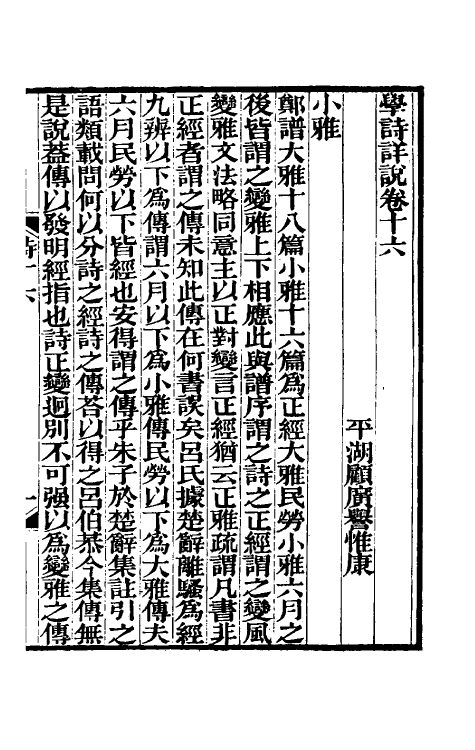 學詩詳說卷十六
平湖顧廣譽惟康
小雅
鄭譜大雅十八篇小雅十六篇為正經大雅民勞小雅六月之
後皆謂之變雅上下相應此與譜序謂之詩之正經謂之變風
變雅文法略同意主以正對變言正經猶云正雅疏謂凡書非
正經者謂之傳未知此傳在何書誤矣呂氏據楚辭離騷為經
九辨以下為傳謂六月以下為小雅傳民勞以下為大雅傳夫
六月民勞以下皆經也安得謂之傳乎朱子於楚辭集註引之
語類載問何以分詩之經詩之傳荅以得之呂伯恭今集傳無
是說葢傳以發明經指也詩正變迥別不可强以為變雅之傳
詩十六
一